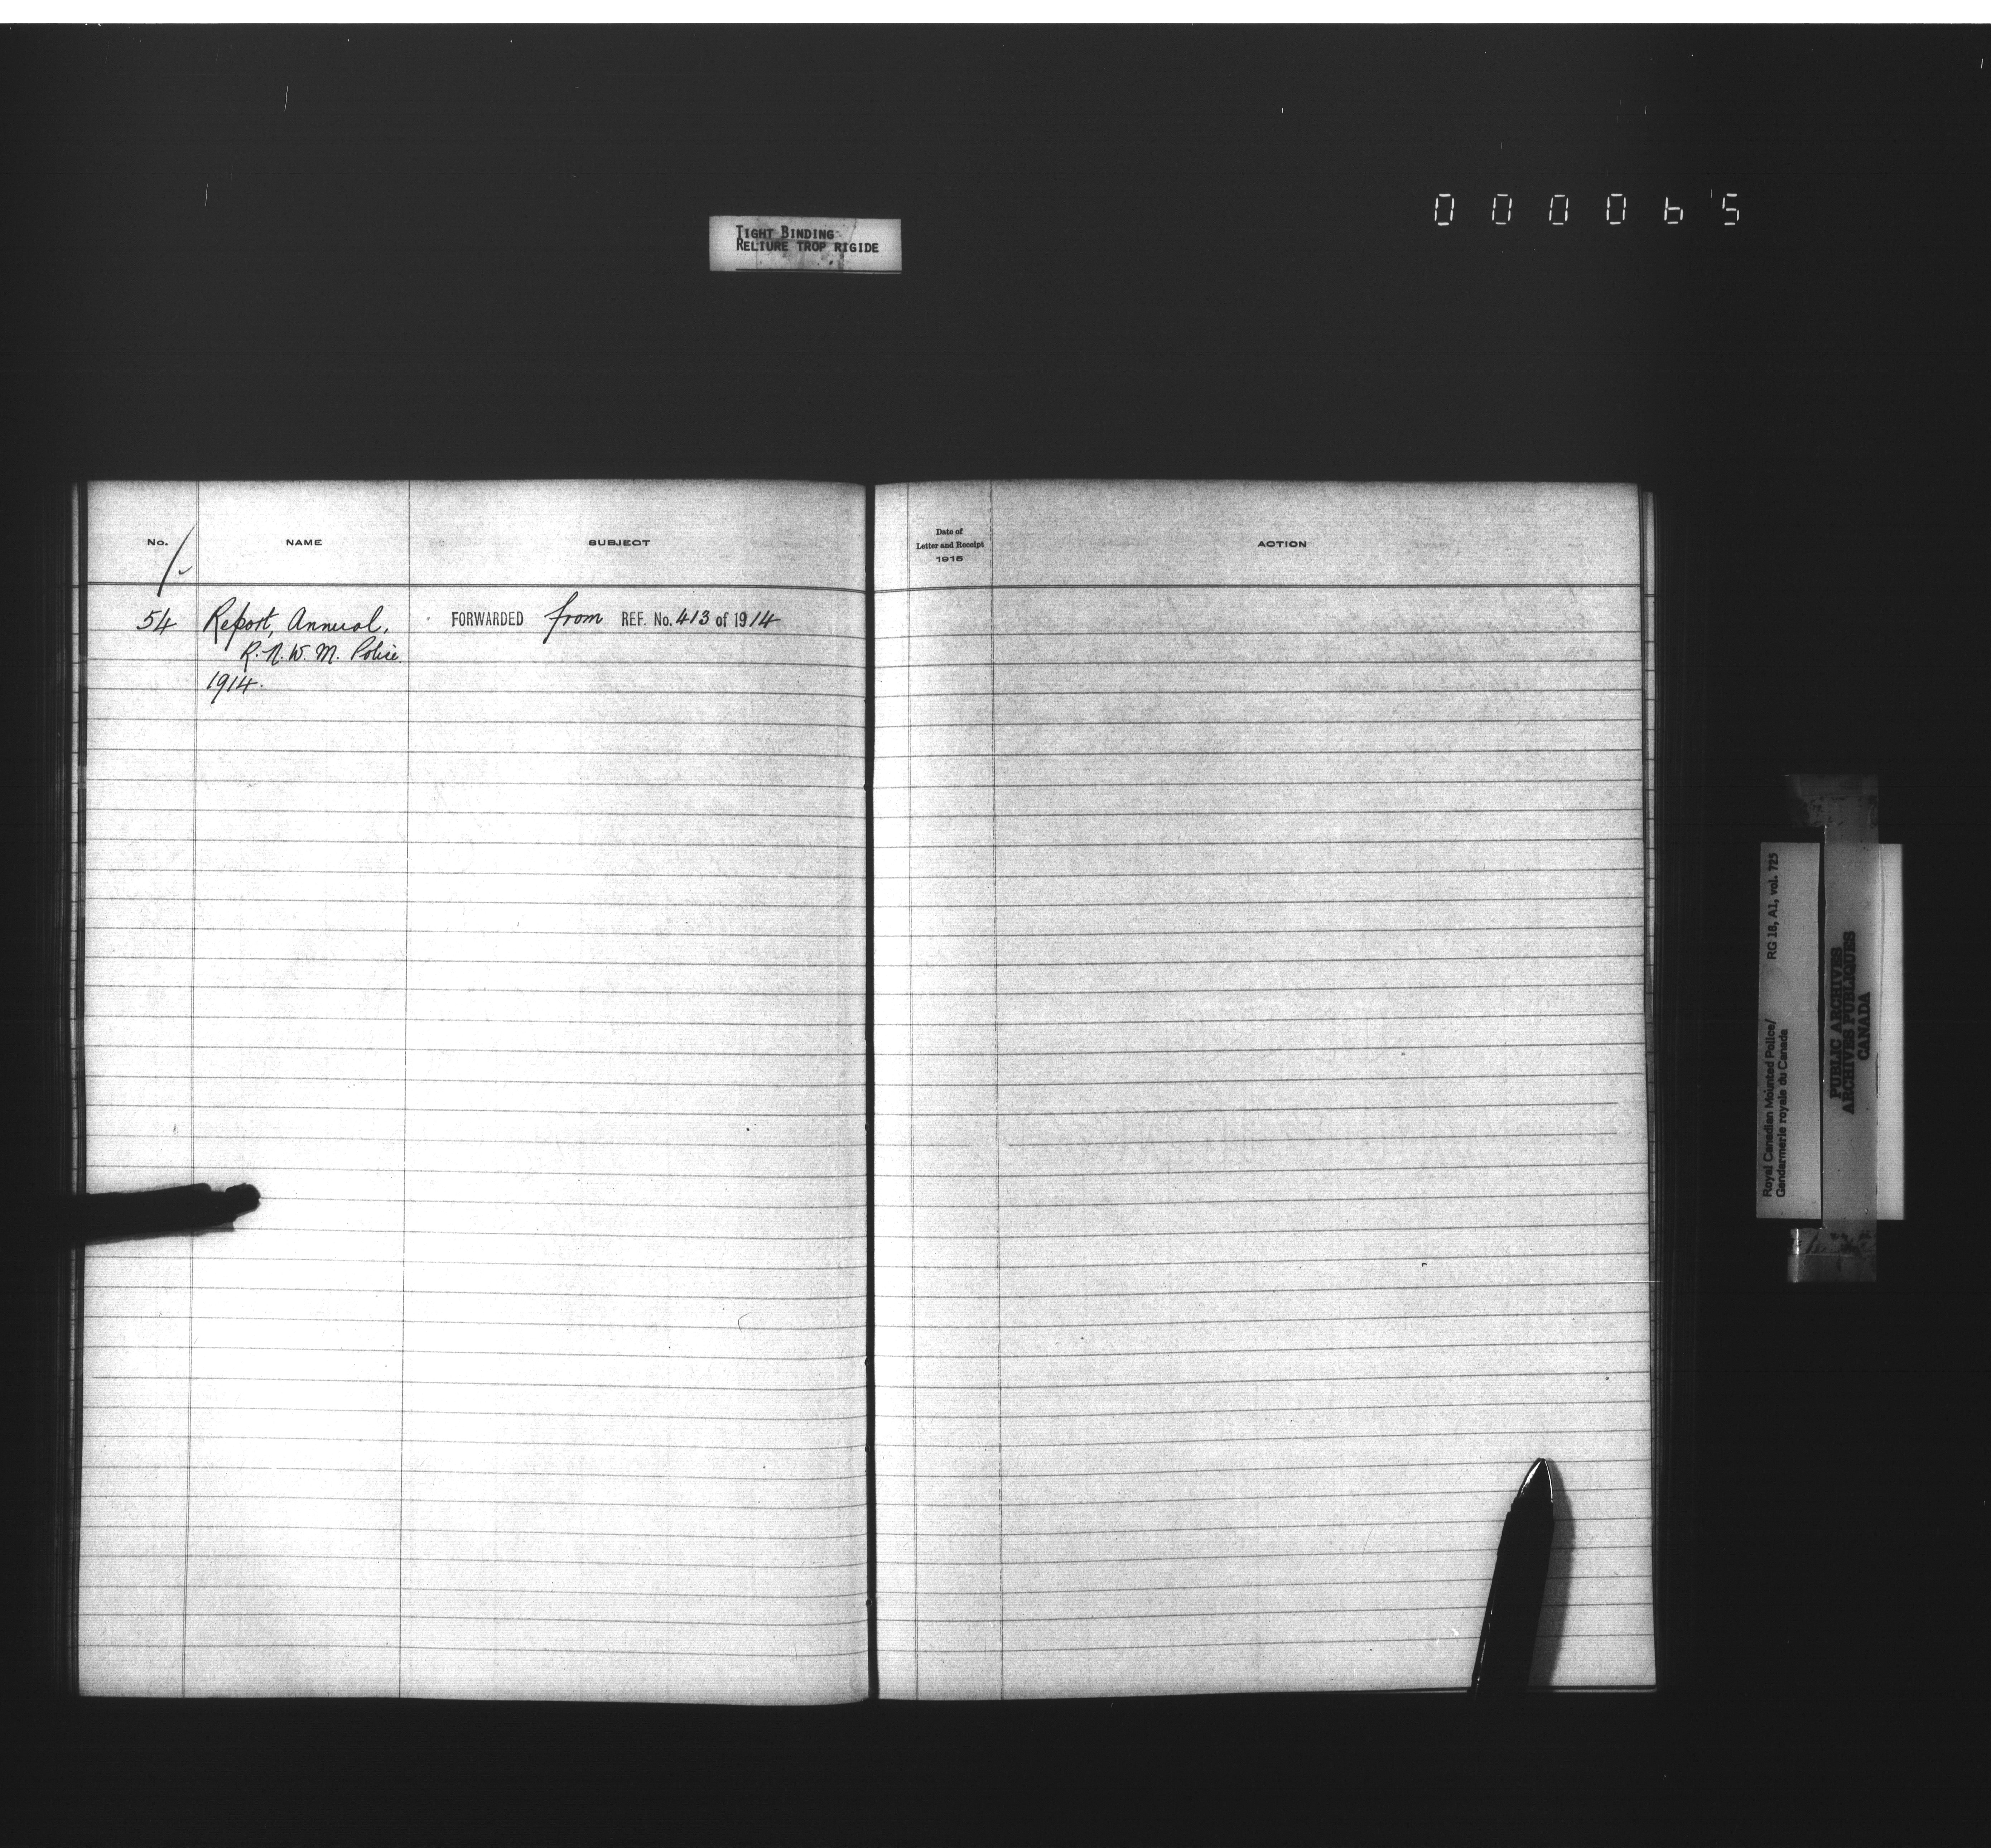 000065
TIGHT BINDING
RELIURE TROP RIGIDE
No. NAME SUBJECT
Date of
Letter and Receipt
1915
ACTION
54 Report, Annual, FORWARDED from REF. No. 413 of 1914
R. N. W. M. Police
1914.
Royal Canadian Mounted Police/ RG 18, A1, vol. 725
Gendarmerie royale du Canada
PUBLIC ARCHIVES
ARCHIVES PUBLIQUES
CANADA